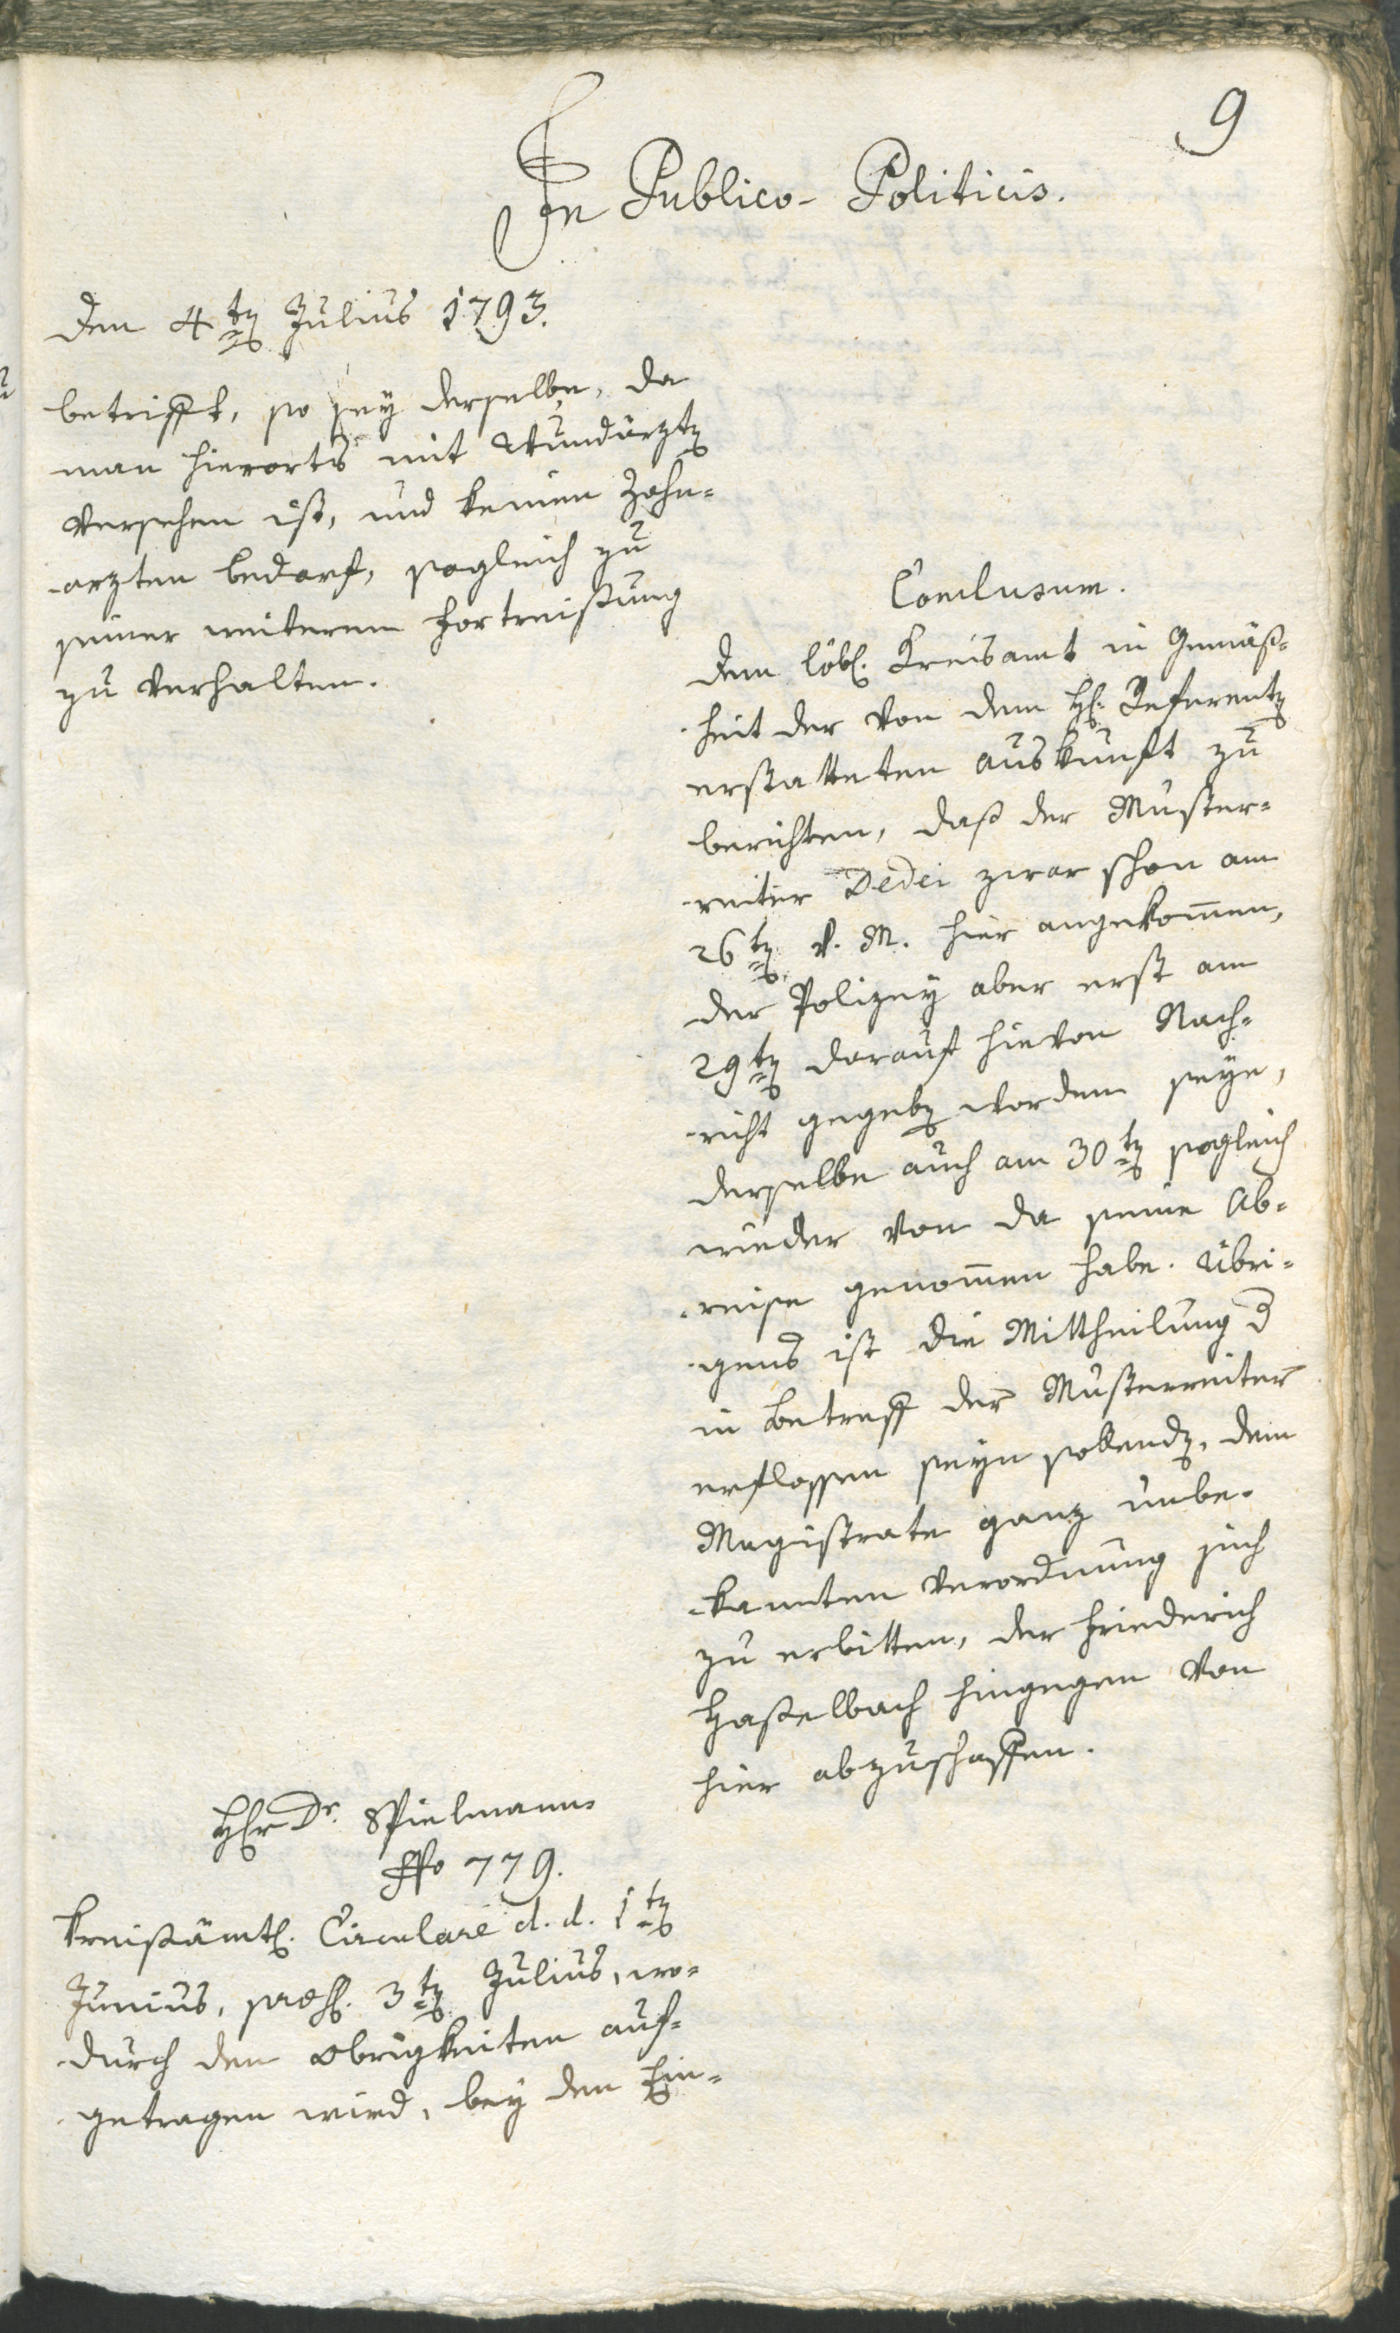 9
In Publico-Politicis.
Den 4ten Julius 1793.
betrifft, so sey derselbe, da
man hierorts mit Wundärzten
versehen ist, und keinen Zahn-
arzten bedarf, sogleich zu
seiner weiteren Fortreißung
zu verhalten.
Conclusum.
Dem löbl. Kreisamt in Gemäß-
heit der von dem H. Referenten
erstatteten Auskunft zu
berichten, daß der Muster-
reiter Dedei zwar schon am
26ten v. M. hier angekommen,
der Polizey aber erst am
29ten darauf hievon Nach-
richt gegeben worden seye,
derselbe auch am 30ten sogleich
wieder von da seine Ab-
reise genommen habe. Übri-
gens ist die Mittheilung d
in Betreff der Musterreiter
erflossen seyn sollenden, dem
Magistrate ganz unbe-
kannten Verordnung sich
zu erbitten, der Friederich
Haßelbach hingegen von
hier abzuschaffen.
Herr Dr. Spielmann
No 779.
Kreißämtl. Circulare d. d. 1ten
Junius, 3ten Julius, wo-
durch den Obrigkeiten auf-
getragen wird, bey den Ein-